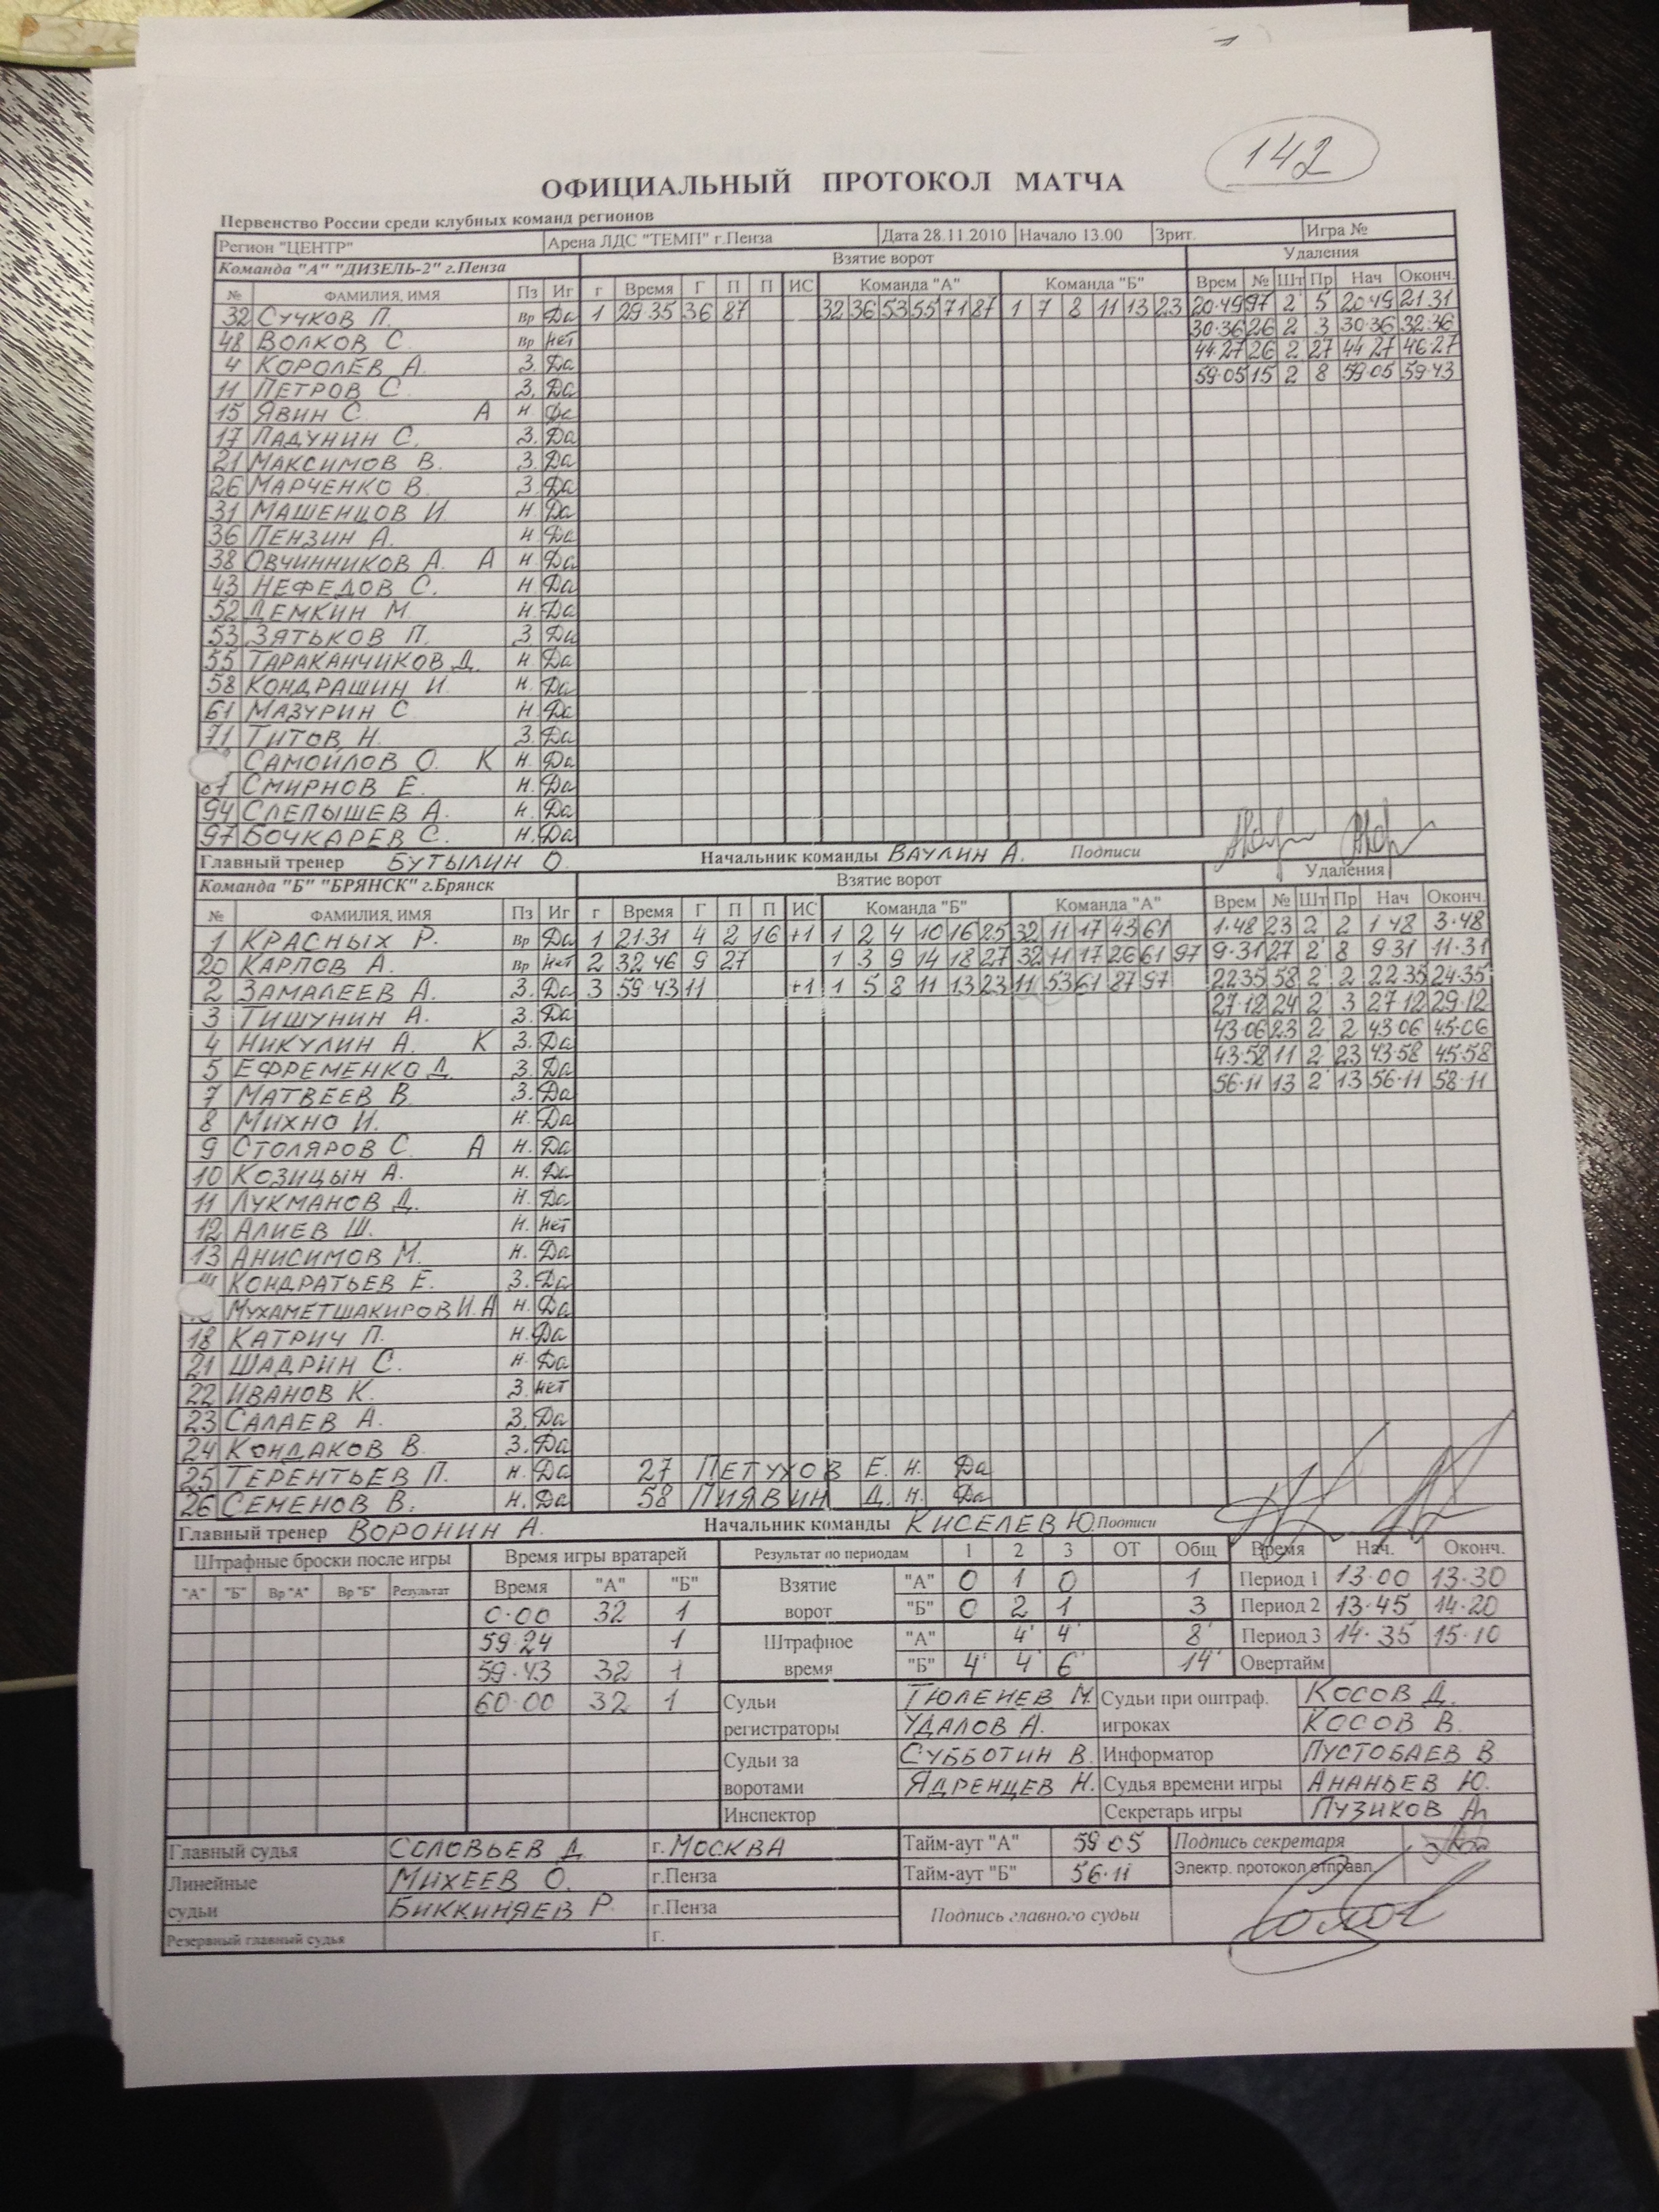 142
ОФИЦИАЛЬНЫЙ ПРОТОКОЛ МАТЧА
Первенство России среди клубных команд регионов
Регион "ЦЕНТР" Арена ЛДС "ТЕМП" г.Пенза Дата 28.11.2010 Начало 13.00 Зрит. Игра №
Команда "А" "ДИЗЕЛЬ-2" г.Пенза Взятие ворот Удаления
№ ФАМИЛИЯ, ИМЯ Пз Иг г Время Г П П ИС Команда "А" Команда "Б" Врем № Шт Пр Нач Оконч.
32 СУЧКОВ П. Вр Да 1 29·35 36 87 32 36 53 55 71 87 1 7 8 11 13 23 20·49 97 2 5 20·49 21·31
48 ВОЛКОВ С Вр Нет 30·36 26 2 3 30·36 32·36
4 КОРОЛЁВ А. З. Да 44·27 26 2 27 44·27 46·27
11 ПЕТРОВ С З. Да 59·05 15 2 8 59·05 59·43
15 ЯВИН С. А Н Да
17 ЛАДУНИН С. З. Да
21 МАКСИМОВ В. З. Да
26 МАРЧЕНКО В. З. Да
31 МАШЕНЦОВ И. Н. Да
36 ПЕНЗИН А. Н Да
38 ОВЧИННИКОВ А. А Н. Да
43 НЕФЕДОВ С. Н. Да
52 ДЕМКИН М. Н. Да
53 ЗЯТЬКОВ П. З Да
55 ТАРАКАНЧИКОВ Д. Н. Да
58 КОНДРАШИН И. Н. Да
61 МАЗУРИН С Н. Да
71 ТИТОВ Н. З. Да
САМОЙЛОВ О. К Н. Да
87 СМИРНОВ Е. Н. Да
94 СЛЕПЫШЕВ А. Н. Да
97 БОЧКАРЕВ С. Н. Да
Главный тренер БУТЫЛИН О. Начальник команды ВАУЛИН А. Подписи
Команда "Б" "БРЯНСК" г.Брянск Взятие ворот Удаления
№ ФАМИЛИЯ, ИМЯ Пз Иг г Время Г П П ИС Команда "Б" Команда "А" Врем № Шт Пр Нач Оконч.
1 КРАСНЫХ Р. Вр Да 1 21·31 4 2 16 +1 1 2 4 10 16 25 32 11 17 43 61 1·48 23 2 2 1·48 3·48
20 КАРПОВ А. Вр Нет 2 32·46 9 27 1 3 9 14 18 27 32 11 17 26 61 97 9·31 27 2 8 9·31 11·31
2 ЗАМАЛЕЕВ А. З. Да 3 59·43 11 +1 1 5 8 11 13 23 11 53 61 87 97 22·35 58 2 2 22·35 24·35
3 ТИШУНИН А. З. Да 27·12 24 2 3 27·12 29·12
4 НИКУЛИН А. К З. Да 43·06 23 2 2 43·06 45·06
5 ЕФРЕМЕНКО Д. З. Да 43·58 11 2 23 43·58 45·58
7 МАТВЕЕВ В З. Да 56·11 13 2 13 56·11 58·11
8 МИХНО И. Н. Да
9 СТОЛЯРОВ С. А Н. Да
10 КОЗИЦЫН А. Н. Да
11 ЛУКМАНОВ Д. Н. Да
12 АЛИЕВ Ш. Н. Нет
13 АНИСИМОВ М. Н. Да
КОНДРАТЬЕВ Е. З. Да
МУХАМЕТШАКИРОВ И. А Н. Да
18 КАТРИЧ П. Н. Да
21 ШАДРИН С. Н Да
22 ИВАНОВ К. З Нет
23 САЛАЕВ А. З. Да
24 КОНДАКОВ В. З. Да
25 ТЕРЕНТЬЕВ П. Н. Да 27 ПЕТУХОВ Е. Н. Да
26 СЕМЕНОВ В. Н. Да 58 ПИЯВИН Д. Н. Да
Главный тренер ВОРОНИН А. Начальник команды КИСЕЛЕВ Ю. Подписи
Штрафные броски после игры Время игры вратарей Результат по периодам 1 2 3 ОТ Общ Время Нач. Оконч.
"А" "Б" Вр "А" Вр "Б" Результат Время "А" "Б" Взятие ворот "А" 0 1 0 1 Период 1 13·00 13·30
0·00 32 1 "Б" 0 2 1 3 Период 2 13·45 14·20
59·24 1 Штрафное время "А" 4' 4' 8' Период 3 14·35 15·10
59·43 32 1 "Б" 4' 4' 6' 14' Овертайм
60·00 32 1 Судьи регистраторы ТЮЛЕНЕВ М. Судьи при оштраф. игроках КОСОВ Д.
УДАЛОВ А. КОСОВ В.
Судьи за воротами СУББОТИН В. Информатор ПУСТОБАЕВ В.
ЯДРЕНЦЕВ Н. Судья времени игры АНАНЬЕВ Ю.
Инспектор Секретарь игры ПУЗИКОВ А.
Главный судья СОЛОВЬЕВ Д г. МОСКВА Тайм-аут "А" 59·05 Подпись секретаря
Линейные судьи МИХЕЕВ О. г.Пенза Тайм-аут "Б" 56·11 Электр. протокол отправл.
БИККИНЯЕВ Р. г.Пенза Подпись главного судьи
Резервный главный судья г.